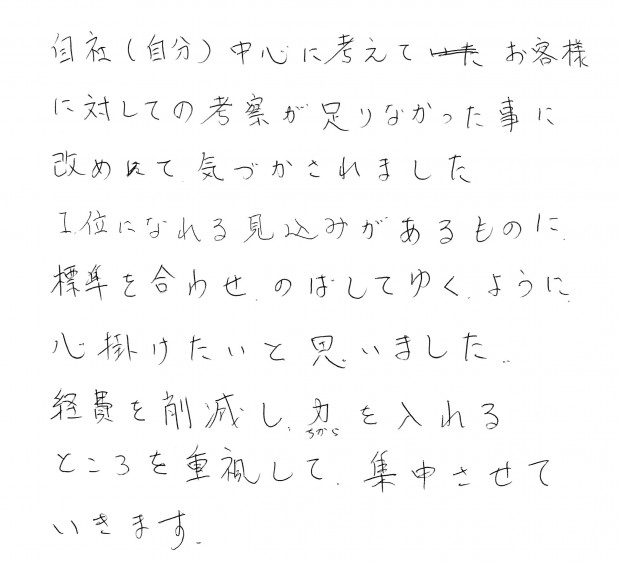 自社(自分)中心に考えて お客様
に対しての考察が足りなかった事に
改めて 気づかされました
1位になれる見込みがあるものに
標準を合わせ、のばしてゆく ように
心掛けたいと思いました。
経費を削減し、力を入れる
ちから
ところを重視して、集中させて
いきます。